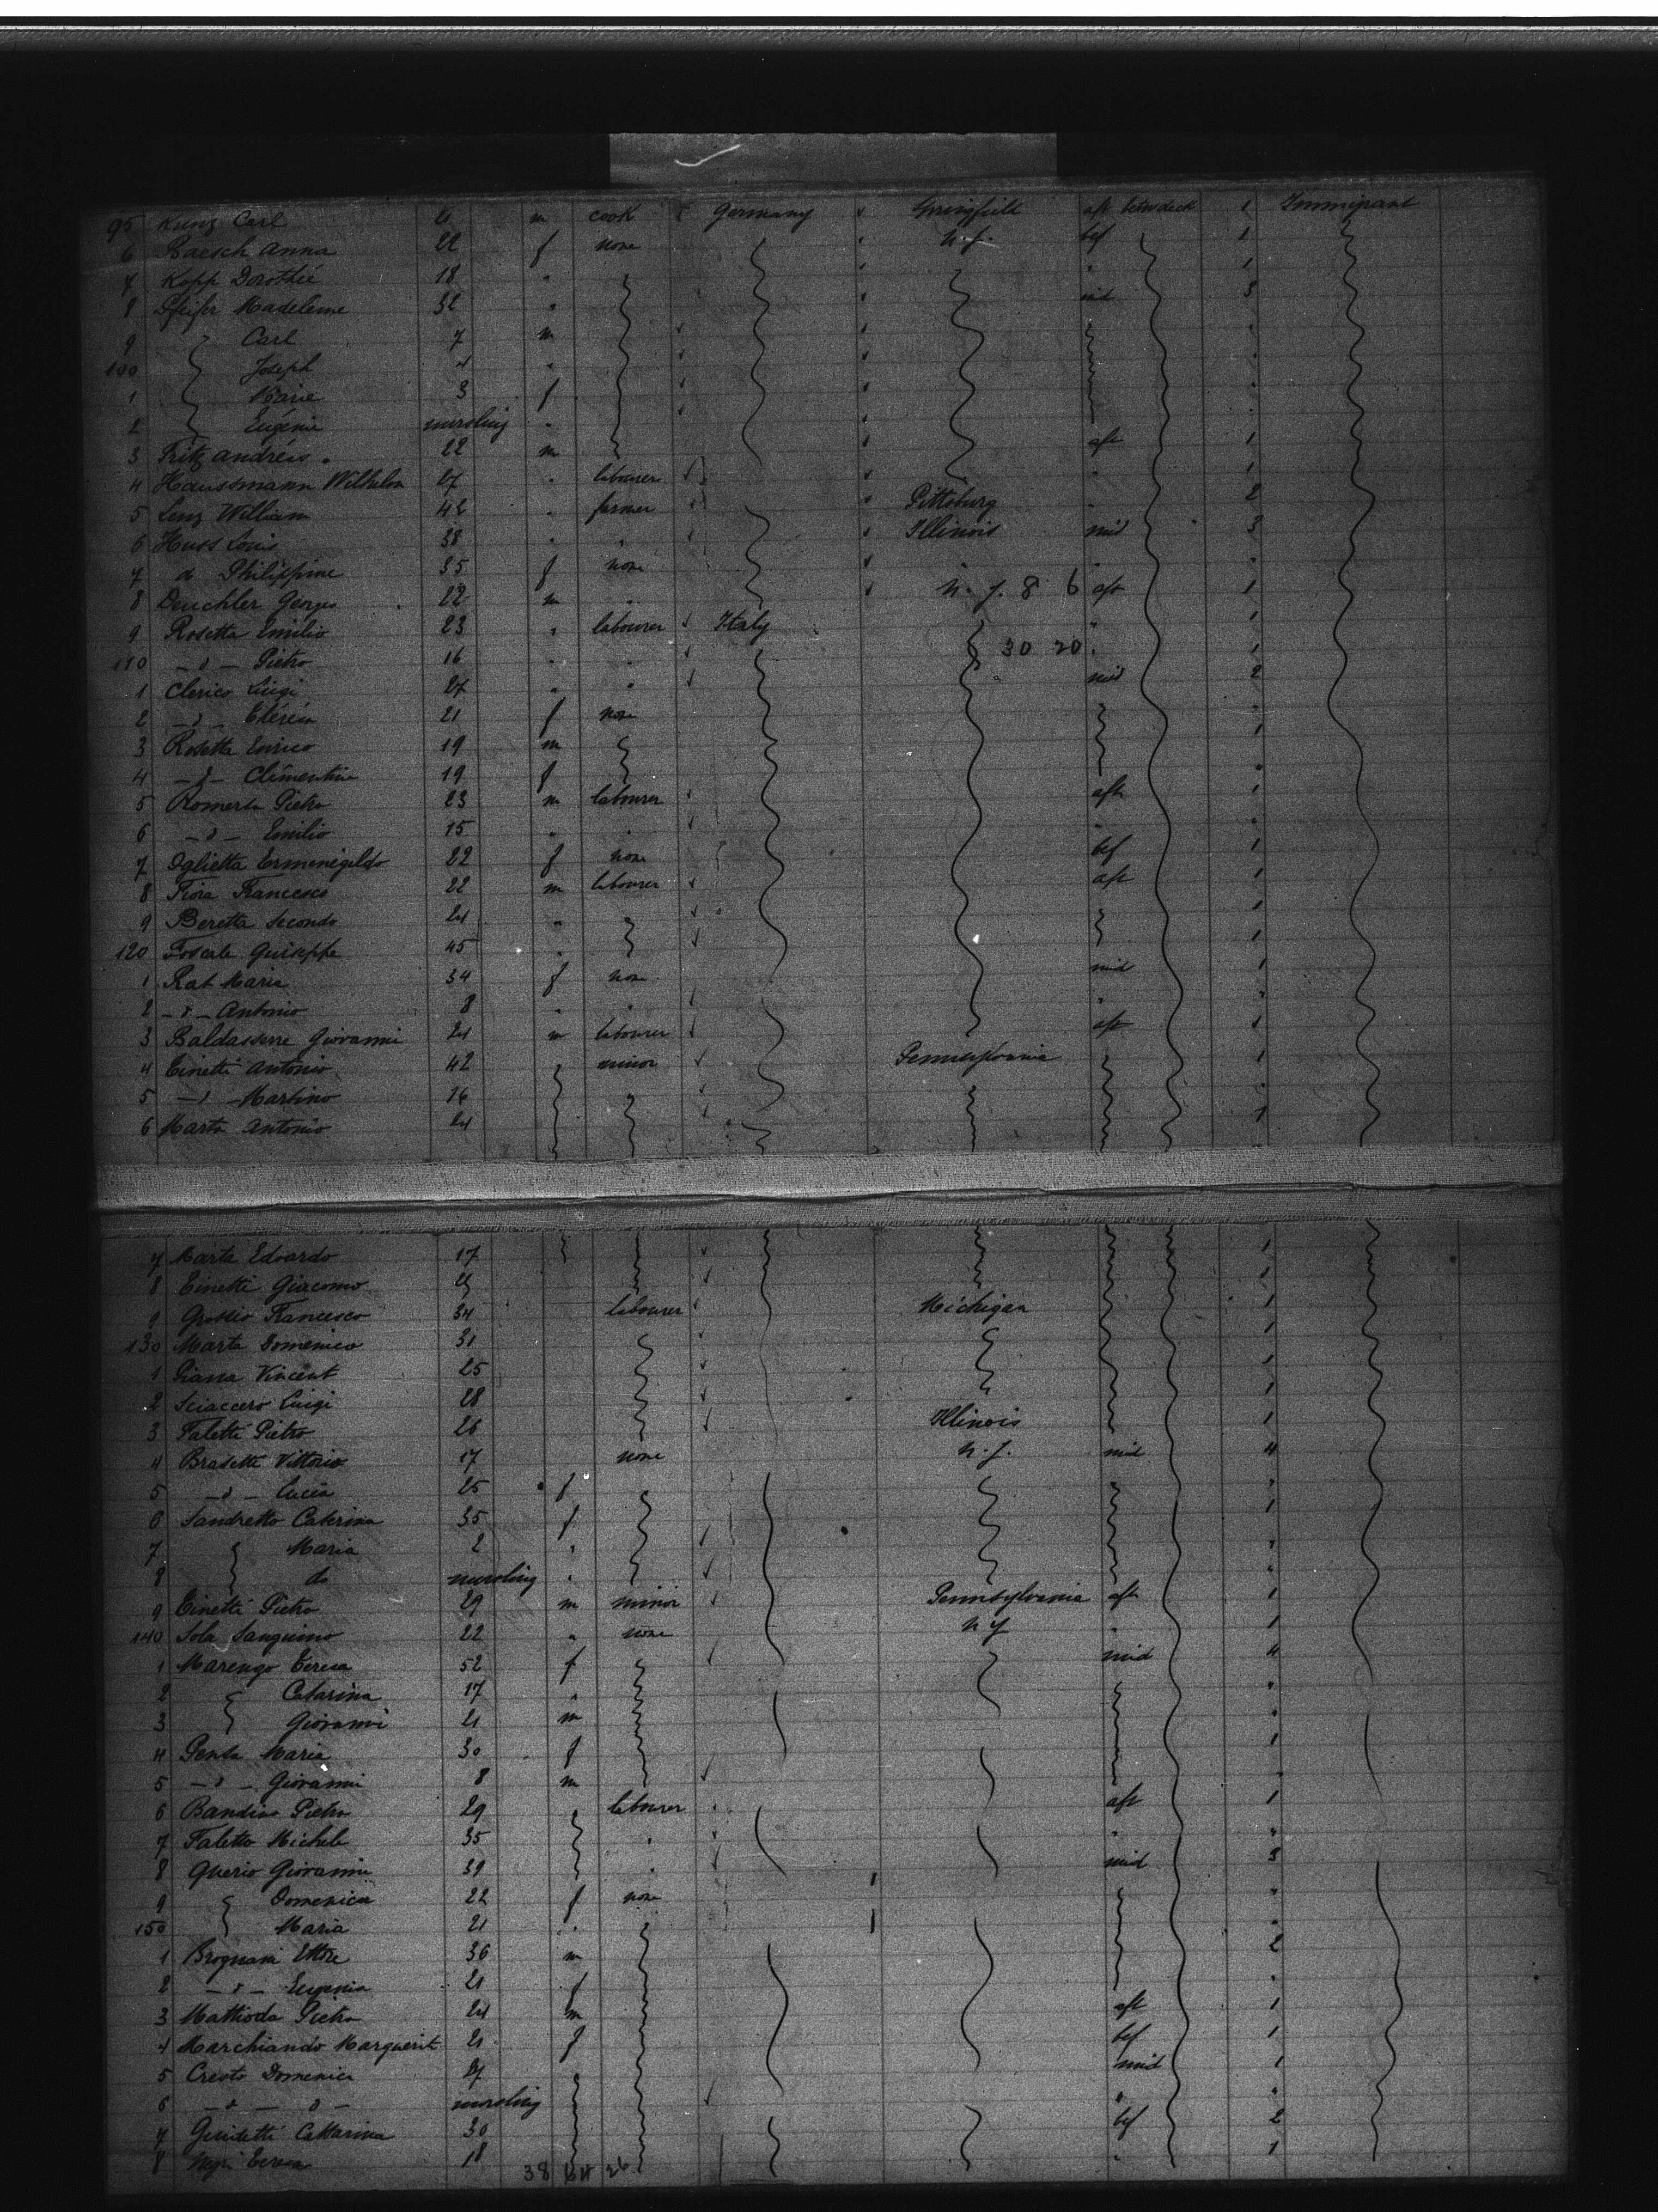 95 Kunz Carl m cook Germany Springfield aft betwdeck 1 Immigrant
6 Baesch Anna 22 f none N.Y. bef 1
7 Kopp Dorothée 18 " " 1
8 Pfeifer Madeleine 32 " mid 3
9 Carl 7 m "
100 Joseph 4 " "
1 Marie 3 f "
2 Eugénie nursling " "
3 Fritz Andréas 22 m aft 1
4 Haussmann Wilhelm 27 " labourer " 1
5 Lenz William 42 " farmer Pittsburg " 2
6 Huss Louis 38 " " Illinois mid 3
7 do Philippine 35 f none " " "
8 Deuchler Georges 22 m " N.Y. 8 6 aft 1
9 Rosetta Emilio 23 " labourer Italy " 1
110 - d - Pietro 16 " " 30 20 " 1
1 Clerico Luigi 27 " " mid 2
2 - d - 21 f none "
3 Rosetta Enrico 19 m 1
4 - d - Clémentine 19 f "
5 Pietro 23 m labourer aft 1
6 - d - Emilio 15 " " " "
7 Oglietta Ermenegildo 22 f none bef 1
8 Fiora Francesco 22 m labourer aft 1
9 Beretta Secondo 24 " 1
120 Guiseppe 45 " 1
1 Rat Maria 34 f none mid 1
2 - d - Antonio 8 " " " "
3 Baldassere Giovanni 24 m labourer aft 1
4 Cinetti Antonio 42 minor Pennsylvania 1
5 - d - Martino 16 "
6 Marta Antonio 24 1
7 Marta Edoardo 17 1
8 Cinetti Giacomo 1
9 Francesco 34 labourer Michigan 1
130 Marta Domenico 31 1
1 Piana Vincent 25 1
2 Sciaccero Luigi 28 1
3 Faletti Pietro 26 Illinois 1
4 Brasetti Vittorio 17 none N.Y. mid 4
5 - d - Lucia 25 f "
6 Sandretto Caterina 35 f 1
7 Maria 2 " "
8 do nursling " "
9 Cinetti Pietro 29 m minor Pennsylvania aft 1
140 Sola Sanguino 22 " none N Y " 1
1 Marengo Teresa 52 f mid 4
2 Catarina 17 " "
3 Giovanni 21 m "
4 Penta Maria 30 f 1
5 - d - Giovanni 8 m "
6 Pietro 29 " labourer aft 1
7 Faletto Michele 35 " " "
8 Querio Giovanni 39 " mid 3
9 Domenica 22 f none "
150 Maria 21 " "
1 Brognani Ettore 36 m 2
2 - d - Eugenia 21 f "
3 Mattioda Pietro 24 m aft 1
4 Marchiando Marguerit 21 f bef 1
5 Cresto Domenica 27 mid 1
6 - d - d - nursling " "
7 Guidetti Cattarina 30 bef 2
8 Negri Teresa 18 " 1
38 26